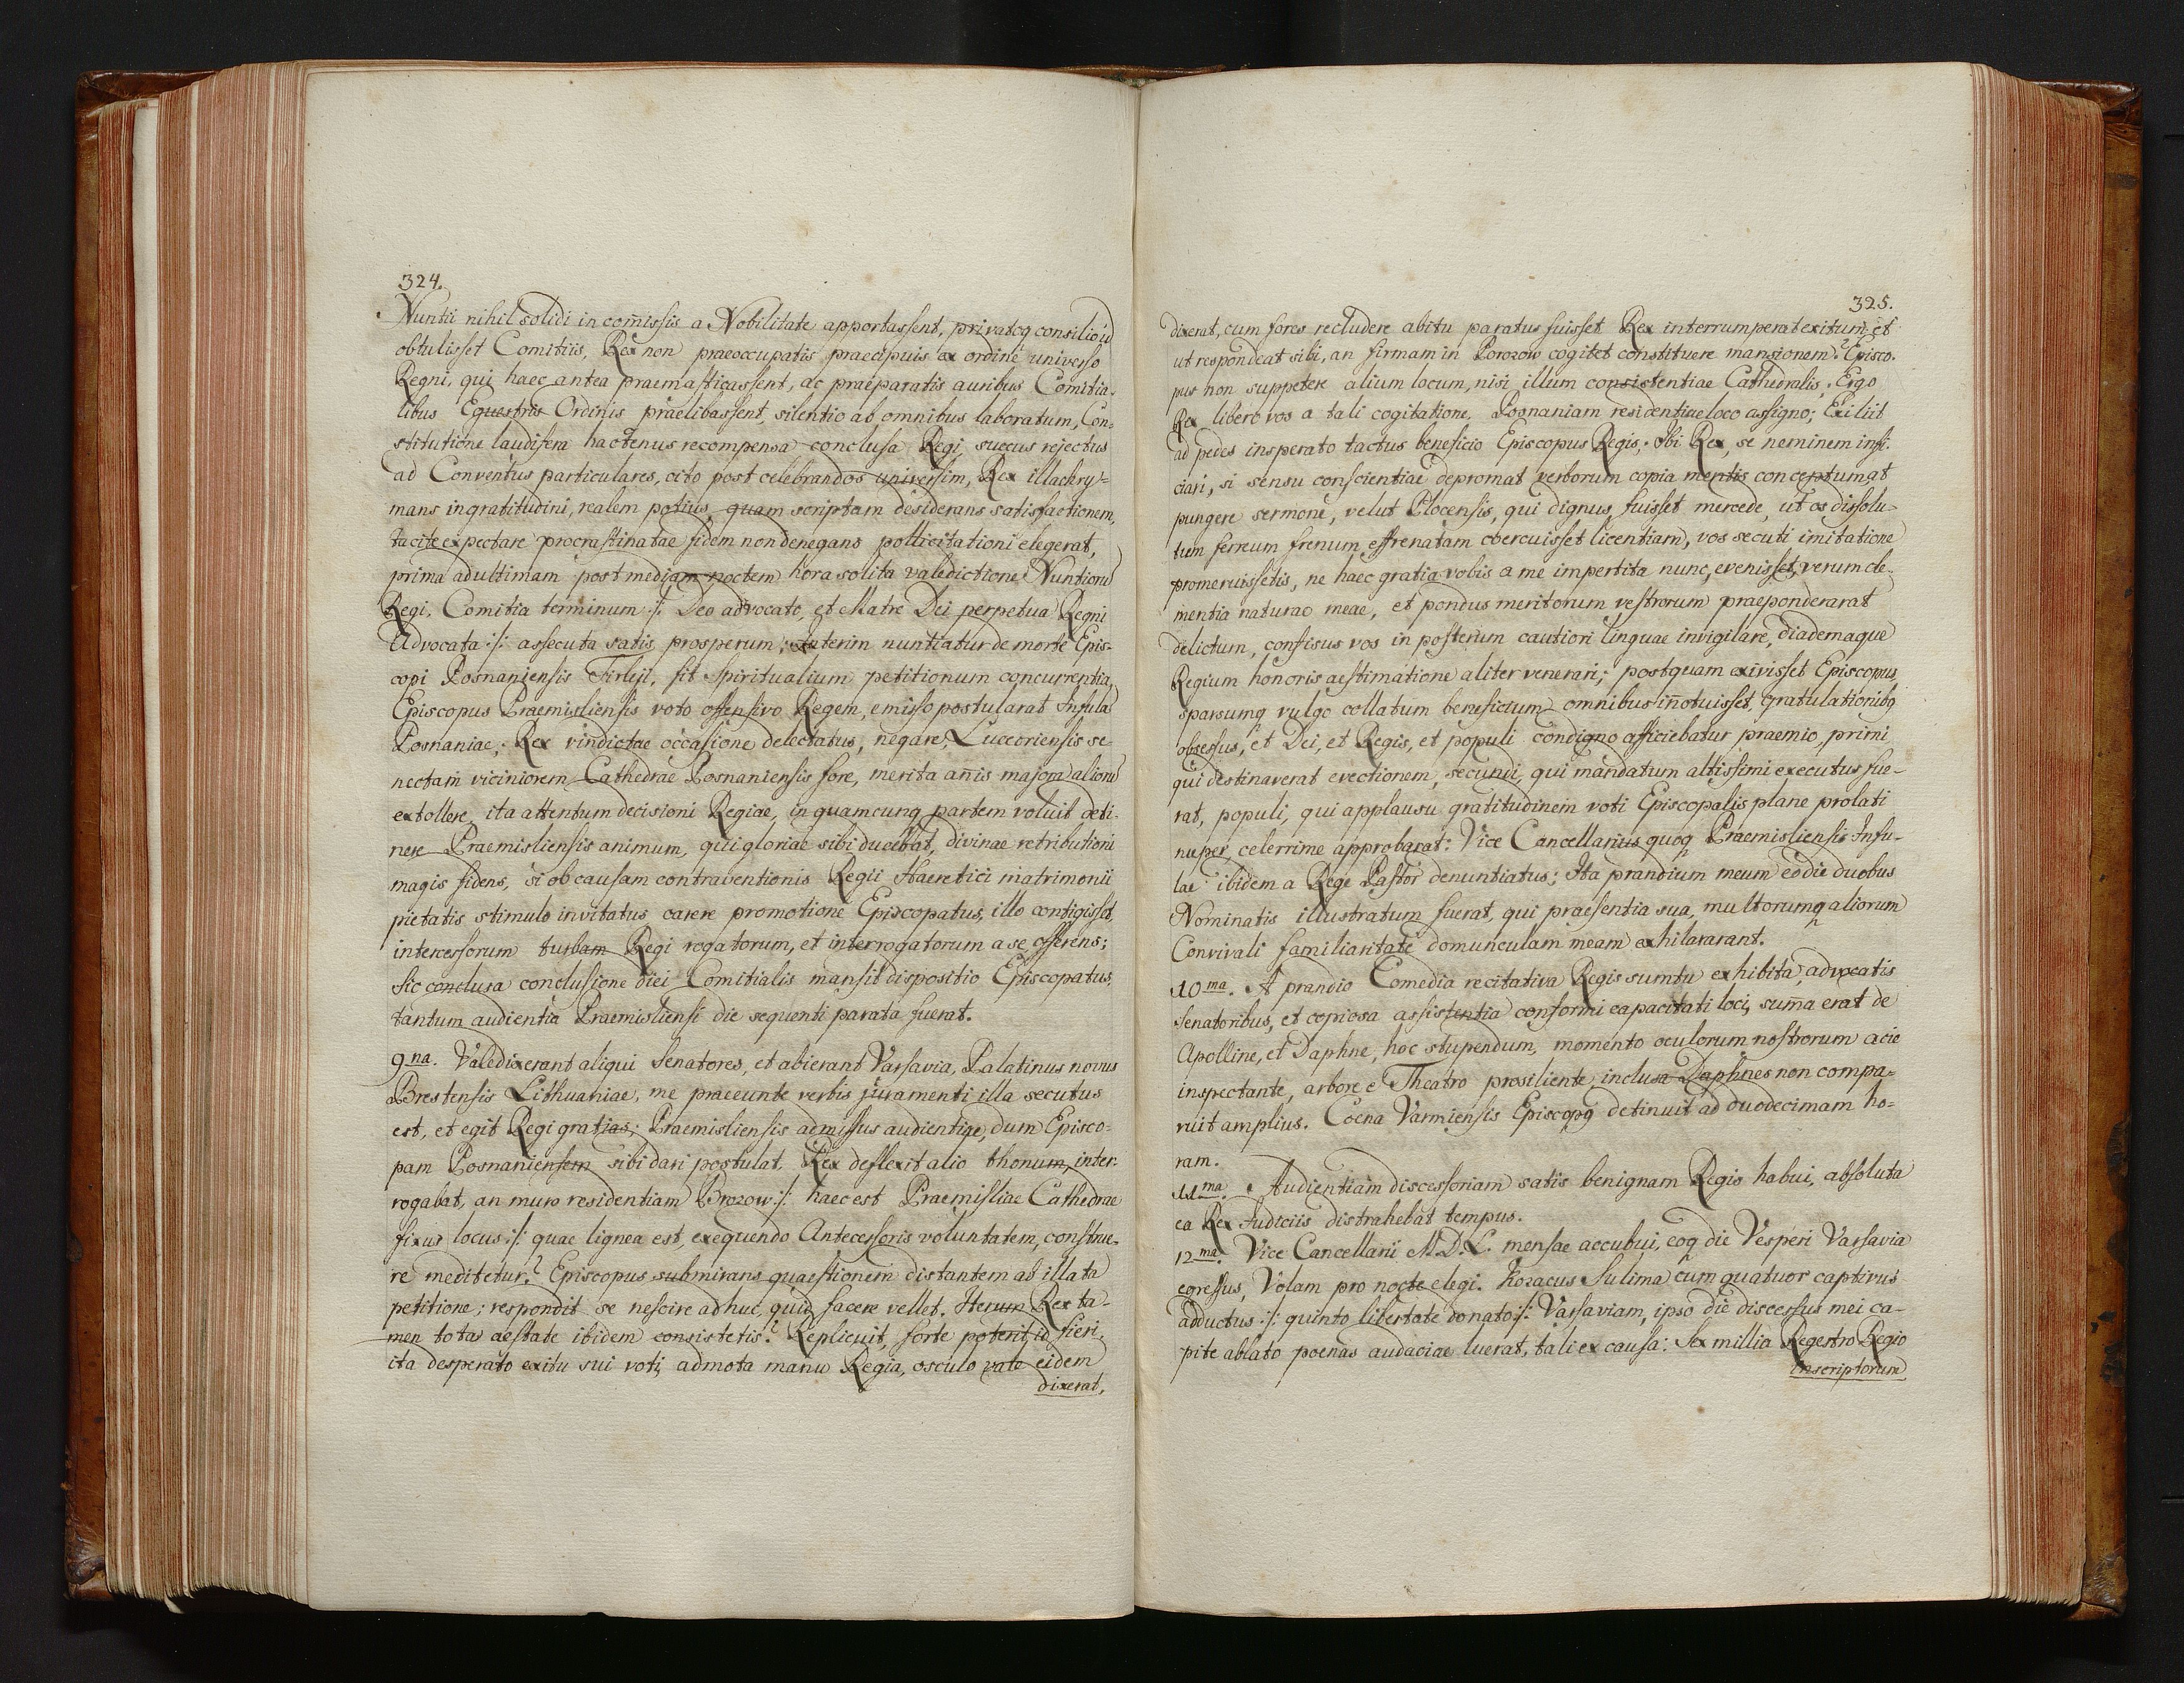 324.
Nuntii nihil solidi in com̄issis a Nobilitate apportassent, privatoq consilio id
obtulisset Comitiis, Rex non praeoccupatis praecipuis ex ordine universo
Regni, qui haec antea praemasticassent, ac praeparatis auribus Comitia-
libus Equestris Ordinis praelibassent, silentio ab omnibus laboratum, Con=
stitutione laudifera hactenus recompensa conclusa Regi, succus rejectus
ad Conventus particulares, cito post celebrandos universim, Rex illachry=
mans ingratitudini, realem potius, quam scriptam desiderans satisfactionem,
tacite expectare procrastinatae fidem non denegans pollicitationi elegerat,
prima ad ultimam post mediam noctem hora solita valedictione Nuntioru
Regi, Comitia terminum :/: Deo advocato, et Matre Dei perpetua Regni
Advocata :/: assecuta satis prosperum; Interim nuntiatur de morte Epis-
copi Posnaniensis Firleji, fit Spiritualium petitionum concurrentia,
Episcopus Praemisliensis voto offensivo Regem, emisso postularat Infula
Posnaniae; Rex vindictae occasione delectatus, negare, Luceoriensis se-
nectam viciniorem Cathedrae Posnaniensis fore, merita an̄is majora alioru
extollere, ita attentum decisioni Regiae, in quamcunq partem voluit deti-
nere Praemisliensis animum, qui gloriae sibi ducebat, divinae retributioni
magis fidens, si ob causam contraventionis Regii Haeretici matrimonii
pietatis stimulo invitatus carere promotione Episcopatus, illo contigisset,
intercessorum turbam Regi rogatorum, et interrogatorum a se offerens;
Sic conclusa conclusione diei Comitialis mansit dispositio Episcopatus,
tantum audientia Praemisliensi die sequenti parata fuerat.
9na. Valedixerant aliqui Senatores, et abierant Varsavia, Palatinus novus
Brestensis Lithuaniae, me praeeunte verbis juramenti illa secutus
est, et egit Regi gratias; Praemisliensis admissus audientiae, dum Episco-
pam Posnaniensem sibi dari postulat, Rex deflexit alio thonum, inter-
rogabat, an muro residentiam Brozow :/: haec est Praemisliae Cathedrae
fixus locus :/: quae lignea est, exequendo Antecessoris voluntatem, construe-
re meditetur? Episcopus submirans quaestionem distantem ab illata
petitione; respondit se nescire adhuc, quid facere vellet. Iterum Rex ta-
men tota aestate ibidem consistetis? Replicuit, forte poterit id fieri,
ita desperato exitu sui voti, admota manu Regia, osculo vale eidem
dixerat,
325.
dixerat, cum fores recludere abitu paratus fuisset Rex interrumperat exitum, et
ut respondeat sibi, an firmam in Porozow cogitet constituere mansionem? Episco-
pus non suppetere alium locum, nisi illum consistentiae Cathedralis; Ergo
Rex libero vos a tali cogitatione, Posnaniam residentiae loco assigno; Exiliit
ad pedes insperato tactus beneficio Episcopus Regis; Ibi Rex, se neminem infi-
ciari, si sensu conscientiae depromat verborum copia mentis conceptum at
pungere sermone, velut Plocensis, qui dignus fuisset mercede, ut os dissolu-
tum ferreum frenum effrenatam coercuisset licentiam, vos secuti imitatione
promeruissetis, ne haec gratia vobis a me impertita nunc, evenisset, verum cle-
mentia naturae meae, et pondus meritorum vestrorum praeponderarat
delictum, confisus vos in posterum cautiori linguae invigilare, diademaque
Regium honoris aestimatione aliter venerari; postquam exivisset Episcopus,
sparsumq vulgo collatum beneficium omnibus in̄otuisset, gratulationibq
obsessus, et Dei, et Regis, et populi condigno afficiebatur praemio, primi
qui destinaverat evectionem, secundi, qui mandatum altissimi executus fue-
rat, populi, qui applausu gratitudinem voti Episcopalis plane prolati
nuper, celerrime approbarat: Vice Cancellarius quoq Praemisliensis Infu-
lae ibidem a Rege Pastor denuntiatus; Ita prandium meum eo die duobus
Nominatis illustratum fuerat, qui praesentia sua, multorumq aliorum
Convivali familiaritate domunculam meam exhilararant.
10ma. A prandio Comedia recitativa Regis sumtu exhibita, advocatis
Senatoribus, et copiosa assistentia conformi capacitati loci, sum̄a erat de
Apolline, et Daphne, hoc stupendum, momento oculorum nostrorum acie
inspectante, arbore e Theatro prosiliente, inclusa Daphnes non compa-
ruit amplius. Coena Varmiensis Episcopq detinuit ad duodecimam ho-
ram.
11ma. Audientiam discessoriam satis benignam Regis habui, absoluta
ea Rex Judiciis distrahebat tempus.
12ma. Vice Cancellarii M.D.L. mensae accubui, eoq die Vesperi Varsavia
egressus, Volam pro nocte elegi. Kozacus Sulima cum quatuor captivus
adductus :/: quinto libertate donato :/: Varsaviam, ipso die discessus mei ca-
pite ablato poenas audaciae luerat, tali ex causa: Sex millia Regestro Regio
Inscriptorum